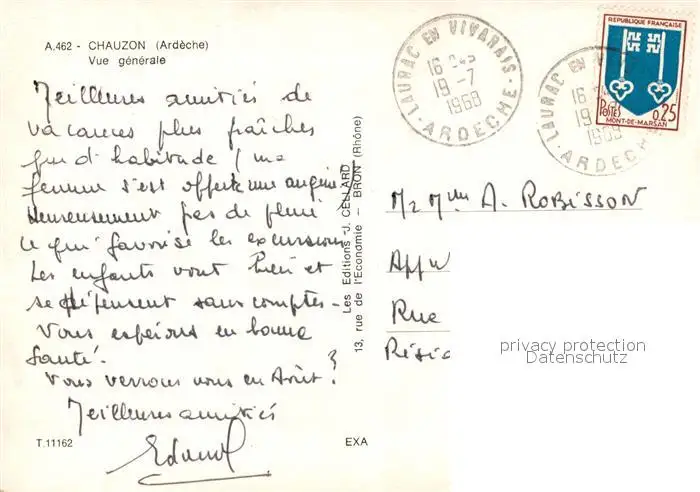 A.462 - CHAUZON (Ardèche)
Vue générale
Meilleures amitiés de
vacances plus fraîches
que d'habitude (ma
femme s'est offerte une angine
Heureusement pas de pluie
ce qui favorise les excursions
Les enfants vont bien et
se dépensent sans compter-
Vous espérons en bonne
santé.
Vous verrons nous en Août ?
Meilleures amitiés
T.11162
EXA
Les Editions J. CELLARD
13, rue de l'Economie - BRON (Rhône)
LAURAC EN VIVARAIS
16 H45
19-7
1968
ARDECHE
LAURAC EN VIV
16
19
1968
ARDECHE
REPUBLIQUE FRANÇAISE
POSTES
0,25
MONT-DE-MARSAN
A. ROBISSON
App
Rue
Résid
privacy protection
Datenschutz